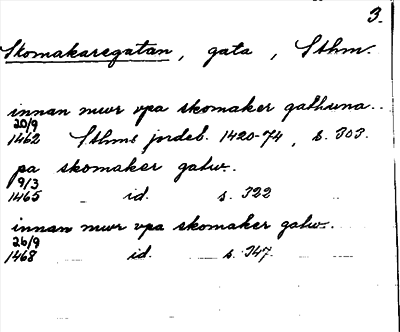 3.
Skomakaregatan, gata, Sthm.
innan mwr vpa skomaker gathuna..
20/9
1462 Sthms jordeb. 1420-74, s. 303.
pa skomaker gatw..
9/3
1465 _ id. s. 322
innan mwr vpa skomaker gatw..
26/9
1468 id. s. 347.